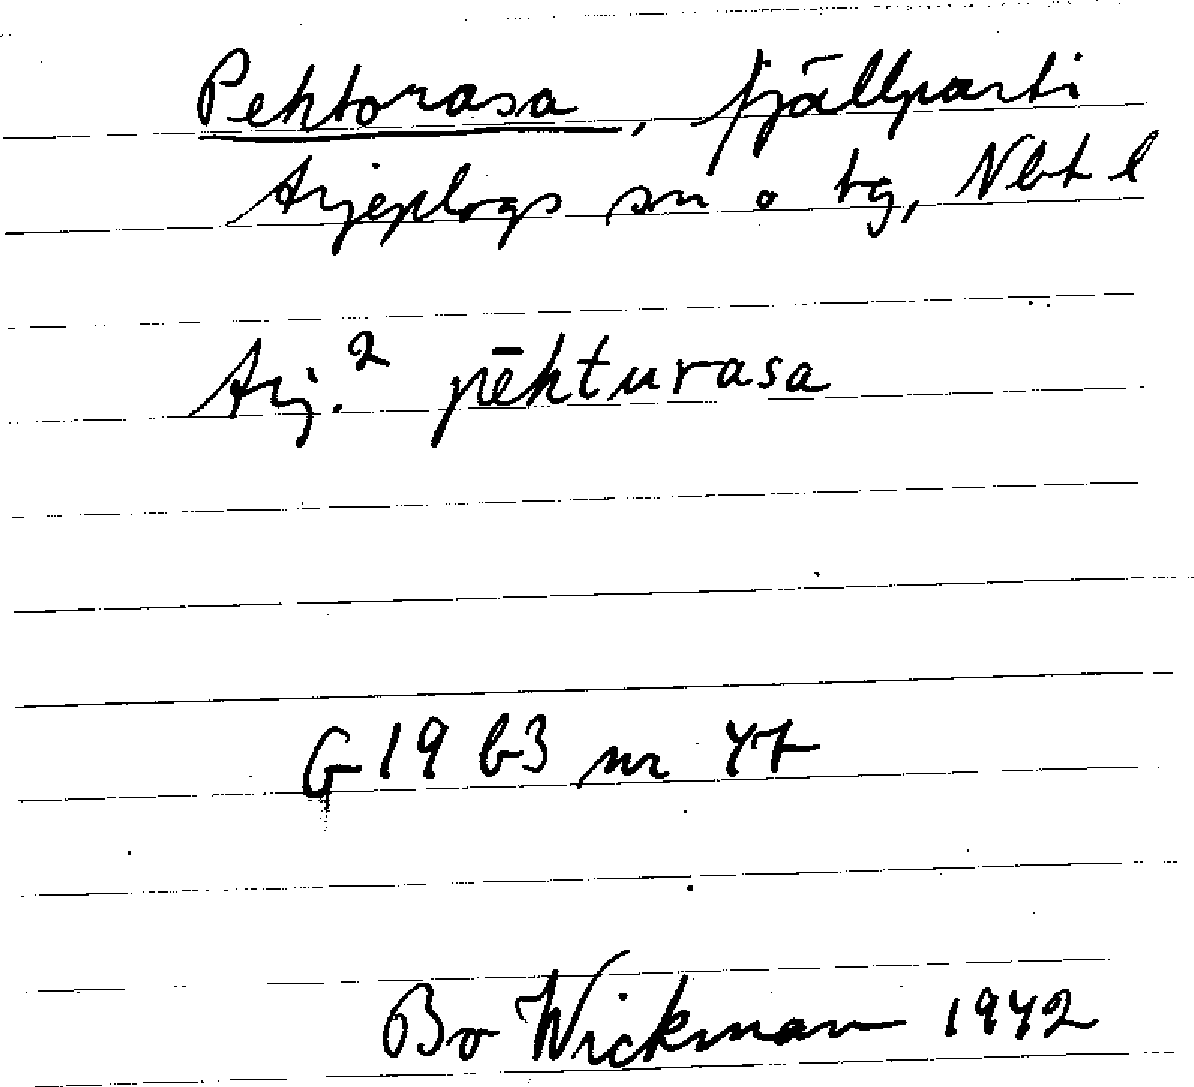 Pehtorasa, fjällparti
Arjeplogs sn o tg, Nbt l
Arj.² pēhturasa
G 19 b3 nr 47
Bo Wickman 1942